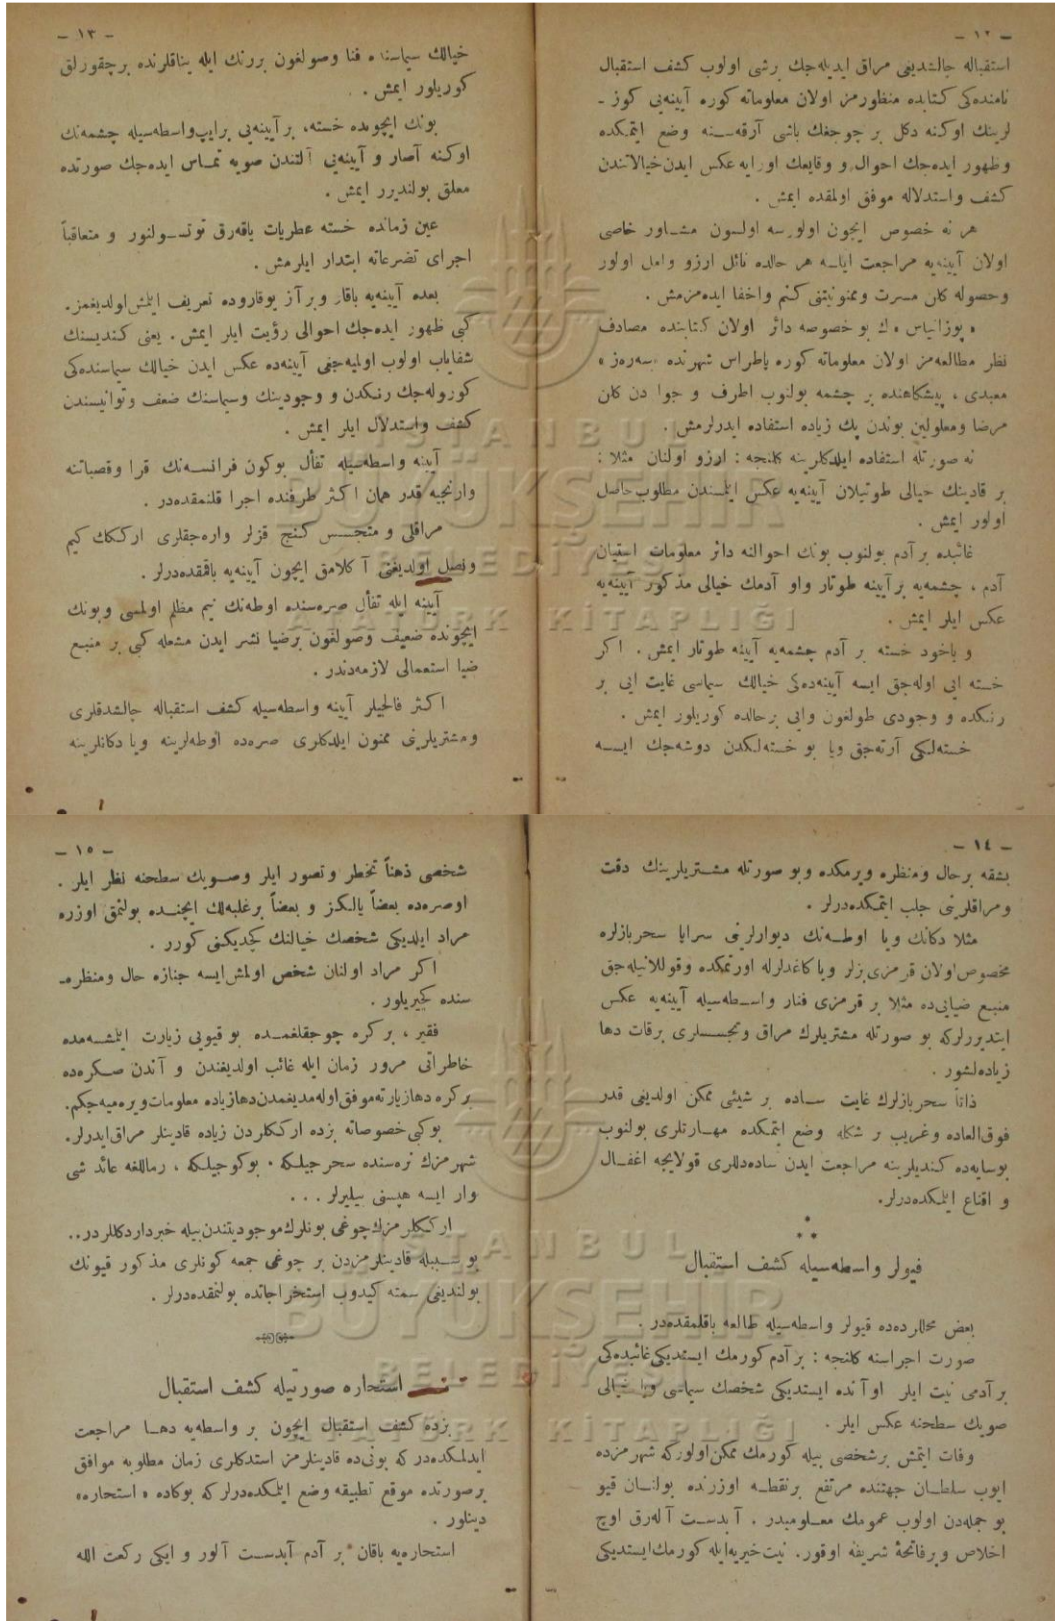 - ١٢ -
استقباله چالشدیغی مراق ایدیله‌جك برشی اولوب كشف استقبال
نامنده‌كی كتابده منظورمز اولان معلوماته كوره آیینه‌یی كوز -
لرینك اوكنه دكل بر چوجغك باشی آرقه‌سنه وضع ایتمكده
وظهور ایده‌جك احوال و وقایعك اورایه عكس ایدن خیالاتندن
كشف واستدلاله موفق اولمقده ایمش .
هر نه خصوص ایچون اولورسه اولسون مشاور خاصی
اولان آیینه‌یه مراجعت ایلسه هر حالده نائل ارزو وامل اولور
وحصوله كلن مسرت وممنونیتنی كتم واخفا ایده‌مزمش .
« پوزانیاس » ك بو خصوصه دائر اولان كتابنده مصادف
نظر مطالعه‌مز اولان معلوماته كوره پاطراس شهرنده « سه‌ره‌ز »
معبدی ، پیشكاهنده بر چشمه بولنوب اطرف و جوا دن كلن
مرضا ومعلولین بوندن پك زیاده استفاده ایدرلرمش .
نه صورتله استفاده ایلدكلرینه كلنجه : ارزو اولنان مثلا :
بر قادینك خیالی طوتیلان آیینه‌یه عكس ایلمسندن مطلوب حاصل
اولور ایمش .
غائبده بر آدم بولنوب بونك احوالنه دائر معلومات استیان
آدم ، چشمه‌یه بر آیینه طوتار واو آدمك خیالی مذكور آیینه‌یه
عكس ایلر ایمش .
و یاخود خسته بر آدم چشمه‌یه آیینه طوتار ایمش . اكر
خسته ایی اوله‌جق ایسه آیینه‌ده‌كی خیالك سیماسی غایت ایی بر
رنكده و وجودی طولغون وایی برحالده كوریلور ایمش .
خسته‌لكی آرته‌جق ویا بو خسته‌لكدن دوشه‌جك ایسه
- ١٣ -
خیالك سیماسنده فنا وصولغون بررنك ایله یناقلرنده برچقورلق
كوریلور ایمش .
بونك ایچونده خسته، بر آیینه‌یی برایپ واسطه‌سیله چشمه‌نك
اوكنه آصار و آیینه‌یی آلتندن صویه تماس ایده‌جك صورتده
معلق بولندیرر ایمش .
عین زمانده خسته عطریات یاقه‌رق توتسولنور و متعاقباً
اجرای تضرعاته ابتدار ایلرمش .
بعده آیینه‌یه باقار وبرآز یوقاروده تعریف ایلمش اولدیغمز.
كبی ظهور ایده‌جك احوالی رؤیت ایلر ایمش . یعنی كندیسنك
شفایاب اولوب اولمیه‌جغی آیینه‌ده عكس ایدن خیالك سیماسنده‌كی
كوروله‌جك رنكدن و وجودینك وسیماسنك ضعف وتوانیسندن
كشف واستدلال ایلر ایمش .
آیینه واسطه‌سیله تفأل بوكون فرانسه‌نك قرا وقصباتنه
وارنجیه قدر همان اكثر طرفنده اجرا قلنمقده‌در .
مراقلی و متجسس كنج قزلر واره‌جقلری اركك كیم
ونصل اولدیغنی آكلامق ایچون آیینه‌یه باقمقده‌درلر.
آیینه ایله تفأل صره‌سنده اوطه‌نك نیم مظلم اولمسی وبونك
ایچونده ضعیف وصولغون برضیا نشر ایدن مشعله كبی بر منبع
ضیا استعمالی لازمه‌دندر .
اكثر فالجیلر آیینه واسطه‌سیله كشف استقباله چالشدقلری
ومشتریلرینی ممنون ایلدكلری صره‌ده اوطه‌لرینه ویا دكانلرینه
- ١٤ -
بشقه برحال ومنظره ویرمكده وبو صورتله مشتریلرینك دقت
ومراقلرینی جلب ایتمكده‌درلر .
مثلا دكانك ویا اوطه‌نك دیوارلرینی سراپا سحربازلره
مخصوص اولان قرمزی بزلر ویا كاغدلرله اورتمكده وقوللانیله‌جق
منبع ضیایی‌ده مثلا بر قرمزی فنار واسطه‌سیله آیینه‌یه عكس
ایتدیررلركه بو صورتله مشتریلرك مراق وتجسسلری برقات دها
زیاده‌لشور .
ذاتاً سحربازلرك غایت ساده بر شیئی ممكن اولدیغی قدر
فوق‌العاده وغریب بر شكله وضع ایتمكده مهارتلری بولنوب
بوسایه‌ده كندیلرینه مراجعت ایدن ساده‌دللری قولایجه اغفال
و اقناع ایلمكده‌درلر.
قیولر واسطه‌سیله كشف استقبال
بعض محللرده‌ده قیولر واسطه‌سیله طالعه باقلمقده‌در .
صورت اجراسنه كلنجه : بر آدم كورمك ایستدیكی غائبده‌كی
بر آدمی نیت ایلر اوآنده ایستدیكی شخصك سیماسی ویا خیالی
صویك سطحنه عكس ایلر .
وفات ایتمش برشخصی بیله كورمك ممكن اولوركه شهرمزده
ایوب سلطان جهتنده مرتفع برنقطه اوزرنده بولنان قیو
بو جمله‌دن اولوب عمومك معلومیدر . آبدست آله‌رق اوچ
اخلاص وبرفاتحهٔ شریفه اوقور. نیت خیریه‌ایله كورمك ایستدیكی
- ١٥ -
شخصی ذهناً تخطر وتصور ایلر وصویك سطحنه نظر ایلر .
اوصره‌ده بعضاً یالكز و بعضاً برغلبه‌لك ایچنده بولنمق اوزره
مراد ایلدیكی شخصك خیالنك كچدیكنی كورر .
اكر مراد اولنان شخص اولمش ایسه جنازه حال ومنظره‌-
سنده كچیریلور .
فقیر ، بر كره چوجقلغمده بو قیویی زیارت ایلمشسه‌مده
خاطراتی مرور زمان ایله غائب اولدیغندن و آندن صكره‌ده
بركره دها زیارته موفق اوله‌مدیغمدن دها زیاده معلومات ویره‌میه‌جكم.
بوكبی خصوصاته بزده ارككلردن زیاده قادینلر مراق ایدرلر.
شهرمزك نره‌سنده سحرجیلكه ، بوكوجیلكه ، رماللغه عائد شی
وار ایسه هپسنی بیلیرلر ...
اركلكرمزك چوغی بونلرك موجودیتندن بیله خبردار دكللردر..
بو سببله قادینلرمزدن بر چوغی جمعه كونلری مذكور قیونك
بولندیغی سمته كیدوب استخراجاتده بولنمقده‌درلر .
استخاره صورتیله كشف استقبال
بزده كشف استقبال ایچون بر واسطه‌یه دها مراجعت
ایدلمكده‌در كه بونی‌ده قادینلرمز استدكلری زمان مطلوبه موافق
برصورتده موقع تطبیقه وضع ایلمكده‌درلر كه بوكاده « استخاره »
دینلور .
استخاره‌یه یاتان بر آدم آبدست آلور و ایكی ركعت الله
İSTANBUL
BÜYÜKŞEHİR
BELEDİYESİ
ATATÜRK KİTAPLIĞI
İSTANBUL
BÜYÜKŞEHİR
BELEDİYESİ
ATATÜRK KİTAPLIĞI